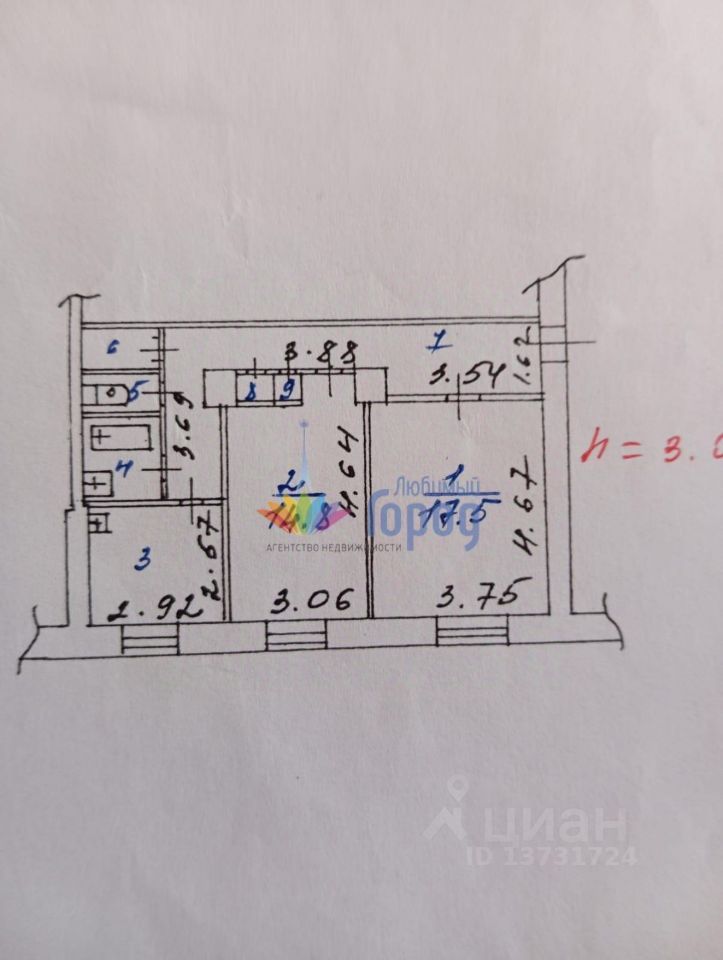 6
3.88
7
3.54
1.62
5
8
9
3.69
4
4.64
h = 3.0
2
14.8
1
17.5
4.67
Любимый
Город
АГЕНТСТВО НЕДВИЖИМОСТИ
3
2.67
2.92
3.06
3.75
циан
ID 13731724